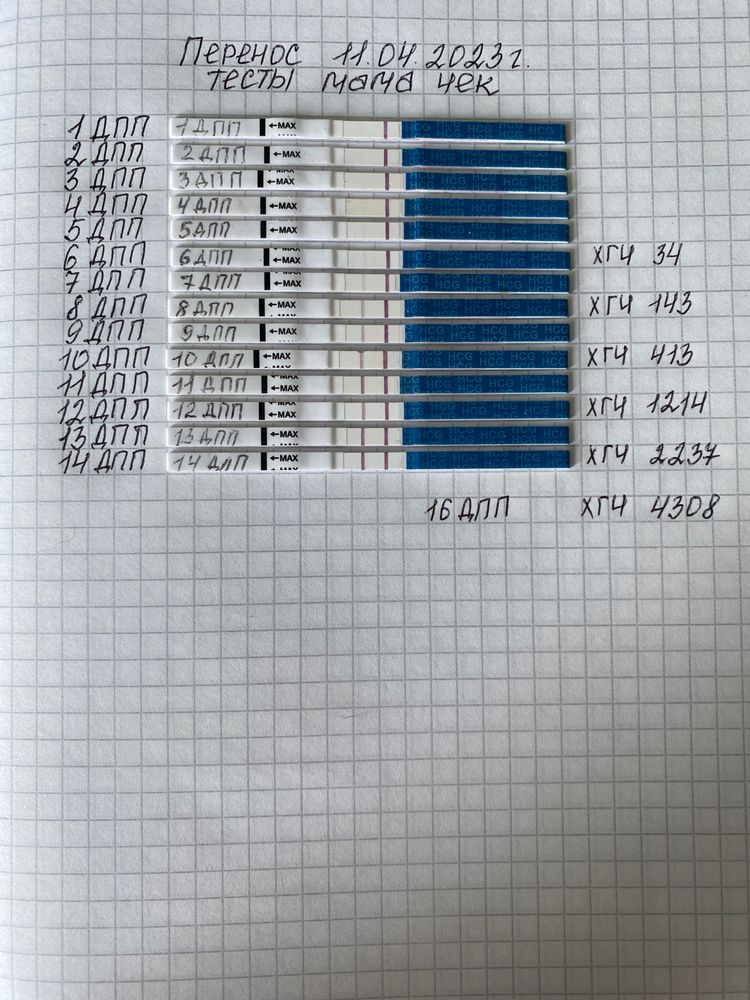 Перенос 11.04.2023г.
тесты мама чек
1 ДПП 1 ДПП ←MAX HCG HCG HCG HCG
2 ДПП 2 ДПП ←MAX HCG HCG HCG
3 ДПП 3 ДПП ←MAX HCG HCG HCG
4 ДПП 4 ДПП ←MAX HCG HCG HCG
5 ДПП 5 ДПП ←MAX HCG HCG HCG
6 ДПП 6 ДПП ←MAX HCG HCG HCG ХГЧ 34
7 ДПП 7 ДПП ←MAX HCG HCG HCG
8 ДПП 8 ДПП ←MAX HCG HCG HCG ХГЧ 143
9 ДПП 9 ДПП ←MAX HCG HCG HCG
10 ДПП 10 ДПП ←MAX HCG HCG HCG ХГЧ 413
11 ДПП 11 ДПП ←MAX HCG HCG HCG
12 ДПП 12 ДПП ←MAX HCG HCG HCG ХГЧ 1214
13 ДПП 13 ДПП ←MAX HCG HCG HCG
14 ДПП 14 ДПП ←MAX HCG HCG HCG ХГЧ 2237
16 ДПП ХГЧ 4308